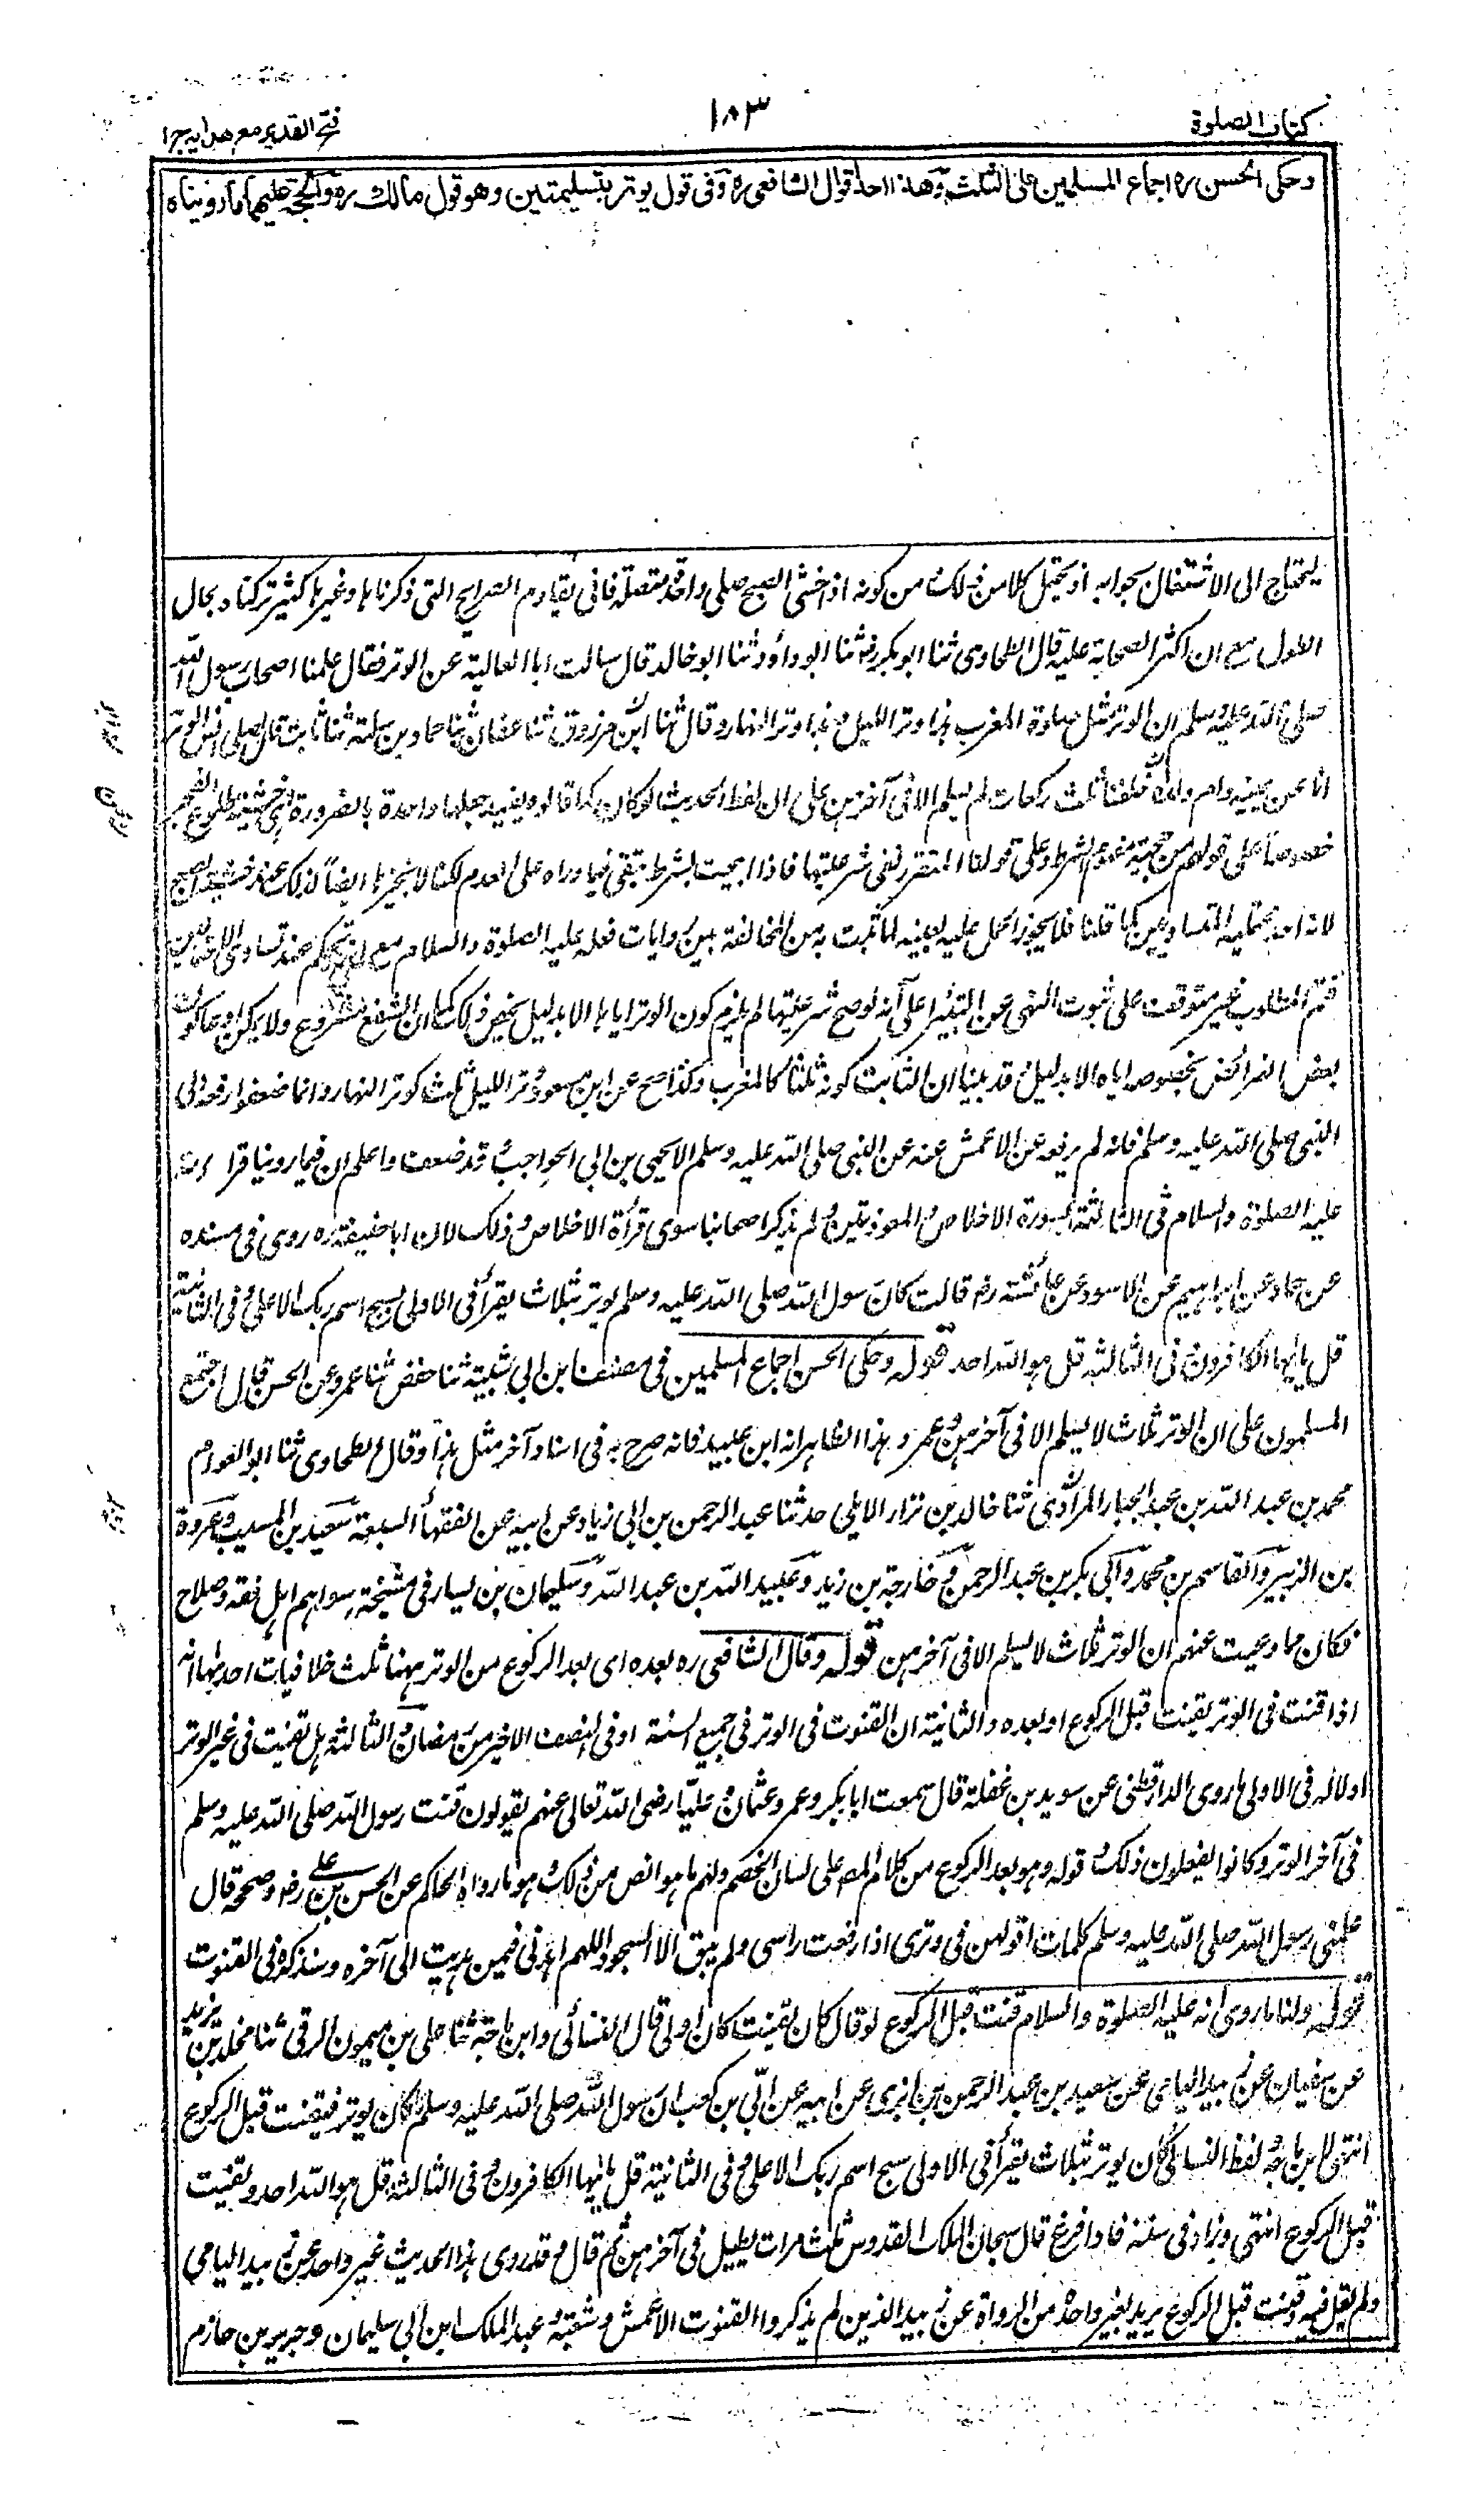 كتاب الصلوة
١٨٣
فتح القدير مع هدايه ج ١
وحكى الحسن ره اجماع المسلمين على الثلث وهذا احد اقوال الشافعى ره وفى قول يوتر بتسليمتين وهو قول مالك ره والحجة عليهما ما رويناه
يحتاج الى الاشتغال بجوابه اذ يحتمل كلا من ذلك من كونه اذا خشى الصبح صلى واحدة متصلة فانى يقاوم الصرايح التى ذكرناها وغيرها كثير تركناه بحال
الطول مع ان اكثر الصحابة عليه قال الطحاوى ثنا ابو بكرة ثنا ابو داود ثنا ابو خالد قال سالت ابا العالية عن الوتر فقال علمنا اصحاب رسول الله
صلى الله عليه وسلم ان الوتر مثل صلوة المغرب هذا وتر الليل وهذا وتر النهار وقال ثنا ابن مرزوق ثنا عفان ثنا حماد بن سلمة ثنا ثابت قال صلى انس الوتر
انا عن يمينه وام ولده خلفنا ثلث ركعات لم يسلم الا فى آخرهن على ان لفظ الحديث لو كان كما قالوه يفيد جعلها واحدة بالضرورة خشية طلوع الفجر
خصوصا على قولهم من حجية مفهوم الشرط وعلى قولنا المتقرر نفى شرعيتها فاذا ابيحت بشرط تبقى فيما وراه على العدم لكنا لا نجيزها ايضا
لانه احد محتمليه المتساويين كما قلنا فلا يجوز الحمل عليه بعينه لما ثبت به من المخالفة بين روايات فعله عليه الصلوة والسلام مع
فتم المطلوب غير متوقف على ثبوت النهى عن البتيراء على انه لو صح شرعيتها لم يلزم كون الوتر اياها الا بدليل يخص ذلك كما ان الشفع مشروع ولا يمكن ادعا كون
بعض الفرائض بخصوصه اياه الا بدليل وقد بينا ان الثابت كونه ثلثا كالمغرب وكذا صح عن ابن مسعود وتر الليل ثلث كوتر النهار وانما ضعفوا رفعه الى
النبى صلى الله عليه وسلم فانه لم يرفعه عن الاعمش عنه عن النبى صلى الله عليه وسلم الا يحيى بن ابى الحواجب وقد ضعف واعلم ان فيما روينا قراءته
عليه الصلوة والسلام فى الثالثة بسورة الاخلاص والمعوذتين ولم يذكر اصحابنا سوى قرأة الاخلاص وذلك لان ابا حنيفة ره روى فى مسنده
عن حماد عن ابراهيم عن الاسود عن عائشة رض قالت كان رسول الله صلى الله عليه وسلم يوتر بثلاث يقرأ فى الاولى سبح اسم ربك الاعلى وفى الثانية
قل يايها الكافرون وفى الثالثة قل هو الله احد قوله وحكى الحسن اجماع المسلمين فى مصنف ابن ابى شيبة ثنا حفص ثنا عمرو عن الحسن قال اجتمع
المسلمون على ان الوتر ثلاث لا يسلم الا فى آخرهن وعمرو هذا الظاهر انه ابن عبيد فانه صرح به فى اسناد آخر مثل هذا وقال الطحاوى ثنا ابو العوام
محمد بن عبد الله بن عبد الجبار المرادى ثنا خالد بن نزار الايلى حدثنا عبد الرحمن بن ابى زياد عن ابيه عن الفقهاء السبعة سعيد بن المسيب وعروة
بن الزبير والقاسم بن محمد وابى بكر بن عبد الرحمن وخارجة بن زيد وعبيد الله بن عبد الله وسليمان بن يسار فى مشيخة سواهم اهل فقه وصلاح
فكان مما وعيت عنهم ان الوتر ثلاث لا يسلم الا فى آخرهن قوله وقال الشافعى ره بعده اى بعد الركوع من الوتر ههنا ثلث خلافيات احدها انه
اذا قنت فى الوتر يقنت قبل الركوع او بعده والثانية ان القنوت فى الوتر فى جميع السنة او فى النصف الاخير من رمضان والثالثة هل تقنت فى غير الوتر
او لا له فى الاولى ما روى الدارقطنى عن سويد بن غفلة قال سمعت ابا بكر وعمر وعثمان وعليا رضى الله تعالى عنهم يقولون قنت رسول الله صلى الله عليه وسلم
فى آخر الوتر وكانوا يفعلون ذلك قوله وهو بعد الركوع من كلام المص على لسان الخصم ولهم ما هو انص من ذلك وهو ما رواه الحاكم عن الحسن بن على رض وصححه قال
علمنى رسول الله صلى الله عليه وسلم كلمات اقولهن فى وترى اذا رفعت راسى ولم يبق الا السجود اللهم اهدنى فيمن هديت الى آخره وسنذكره فى القنوت
قوله ولنا ما روى انه عليه الصلوة والسلام قنت قبل الركوع لو قال كان يقنت كان اولى قال النسائى وابن ماجة ثنا على بن ميمون الرقى ثنا مخلد بن يزيد
عن سفيان عن زبيد اليامى عن سعيد بن عبد الرحمن بن ابزى عن ابيه عن ابى بن كعب ان رسول الله صلى الله عليه وسلم كان يوتر فيقنت قبل الركوع
انتهى لابن ماجة ولفظ النسائى كان يوتر بثلاث يقرأ فى الاولى سبح اسم ربك الاعلى وفى الثانية قل يايها الكافرون وفى الثالثة قل هو الله احد ويقنت
قبل الركوع انتهى وزاد فى سننه فاذا فرغ قال سبحان الملك القدوس ثلث مرات يطيل فى آخرهن ثم قال وقد روى هذا الحديث غير واحد عن زبيد اليامى
ولم يقل فيه وقنت قبل الركوع يريد بغير واحد من الرواة عن زبيد الذين لم يذكروا القنوت الاعمش وشعبة وعبد الملك ابن ابى سليمان وجرير بن حازم